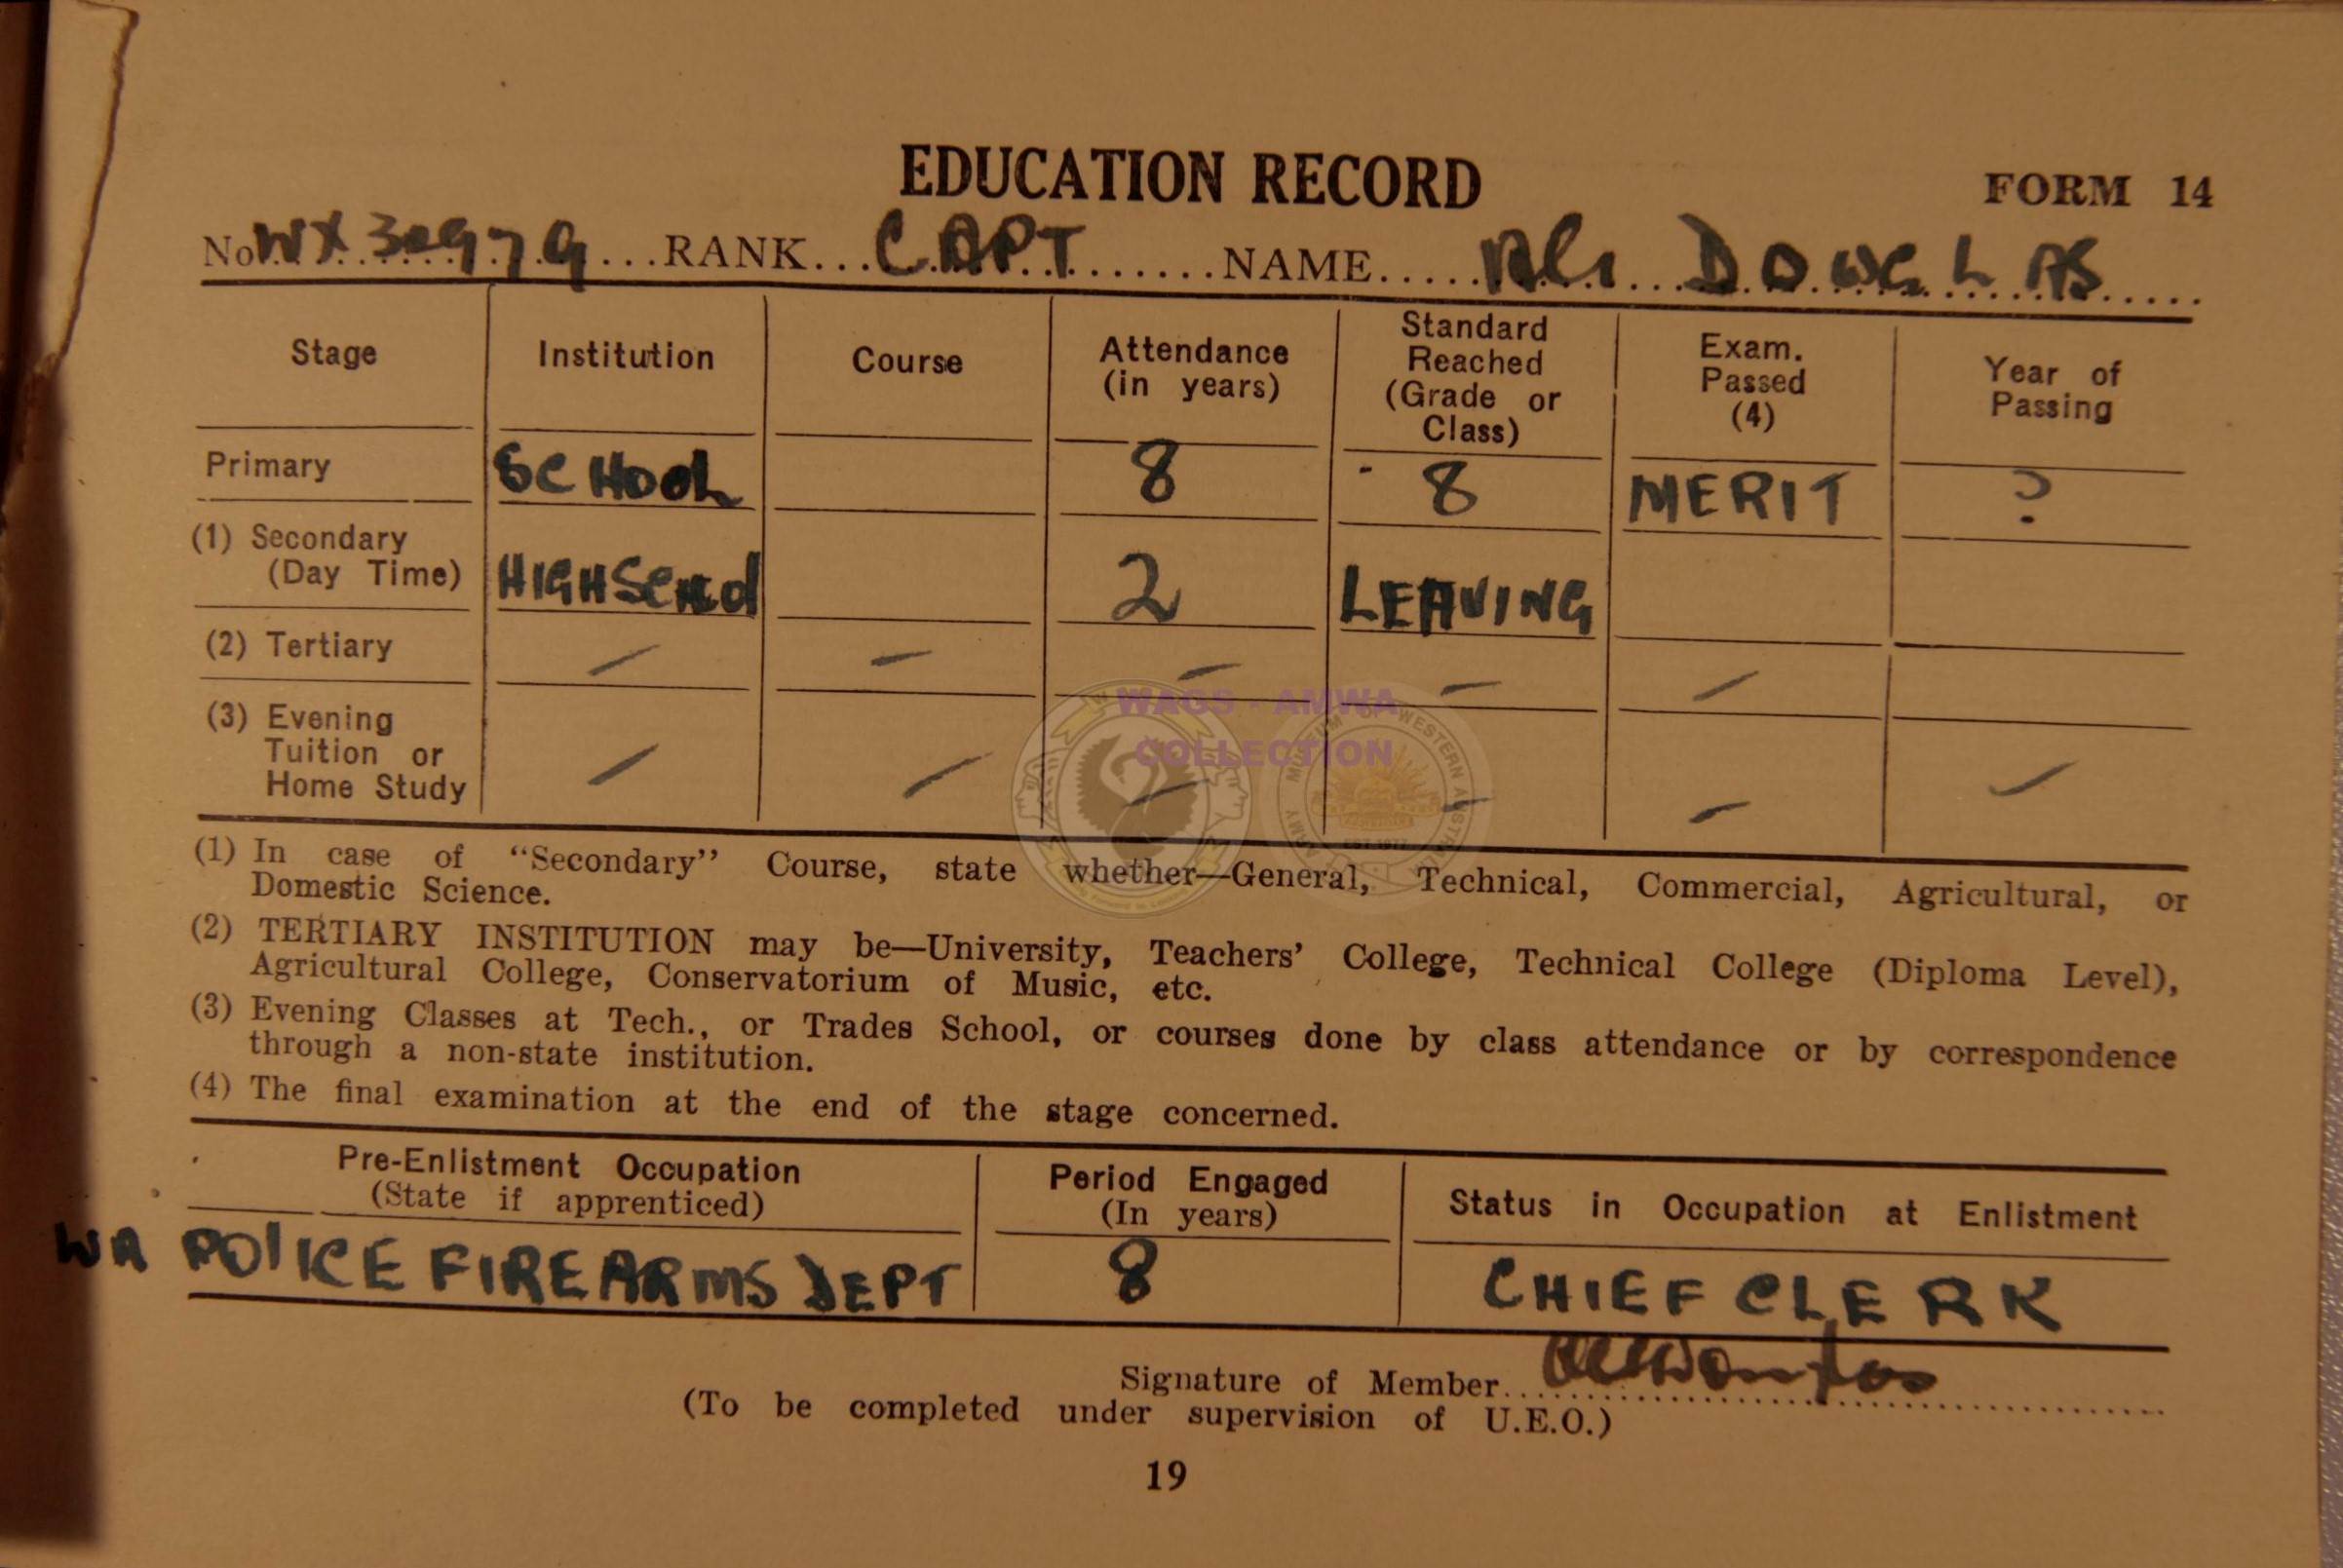 EDUCATION RECORD
FORM 14
No. WX 30979 RANK CAPT NAME DOUGLAS
Stage Institution Course Attendance (in years) Standard Reached (Grade or Class) Exam. Passed (4) Year of Passing
Primary SCHOOL 8 8 MERIT ?
(1) Secondary (Day Time) HIGH SCHOOL 2 LEAVING
(2) Tertiary / - - - /
(3) Evening Tuition or Home Study / / / - - /
(1) In case of “Secondary” Course, state whether—General, Technical, Commercial, Agricultural, or
Domestic Science.
(2) TERTIARY INSTITUTION may be—University, Teachers’ College, Technical College (Diploma Level),
Agricultural College, Conservatorium of Music, etc.
(3) Evening Classes at Tech., or Trades School, or courses done by class attendance or by correspondence
through a non-state institution.
(4) The final examination at the end of the stage concerned.
Pre-Enlistment Occupation (State if apprenticed) Period Engaged (In years) Status in Occupation at Enlistment
WA POLICE FIREARMS DEPT 8 CHIEF CLERK
Signature of Member
(To be completed under supervision of U.E.O.)
19
WAGS - AMWA
COLLECTION